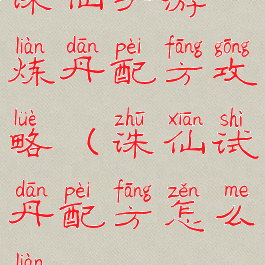 liàn dān pèi fāng gōng
炼丹配方攻
lüè zhū xiān shì
略（诛仙试
dān pèi fāng zěn me
丹配方怎么
liàn